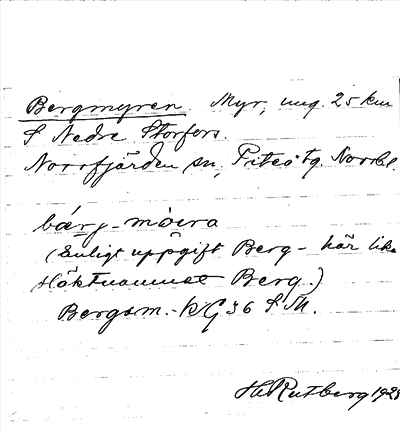 Bergmyren. Myr, ung. 25 km
S Nedre Storfors.
Norrfjärden sn, Piteå tg Norrb.
bárg-mòɩra
(Enligt uppgift Berg- här lika
släktnamnet Berg.)
Bergsm.-kG 36 S M.
H Rutberg 1928